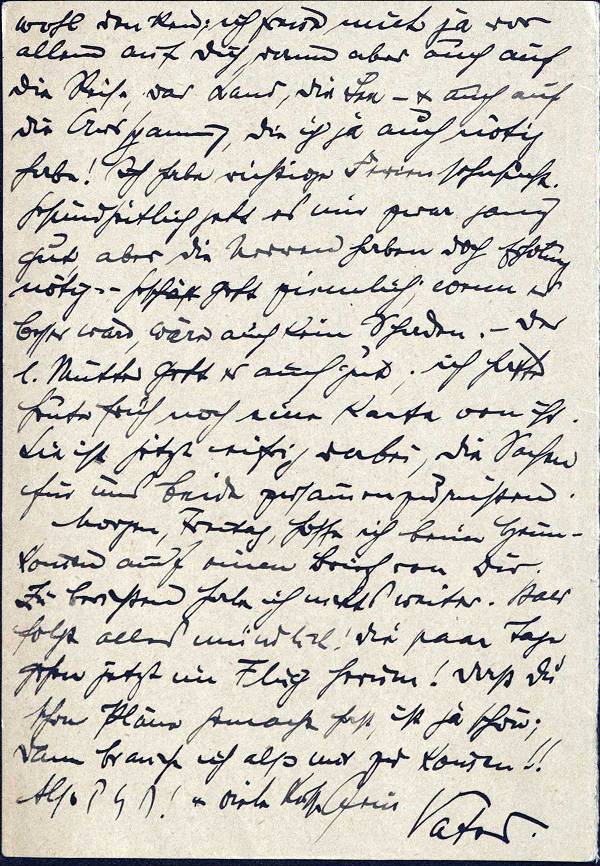 wohl denken; ich freue mich ja vor
allem auf Dich, dann aber auch auf
die Reise, das Land, die See – + auch auf
die Ausspannung, die ich ja auch nötig
habe! Ich habe richtige Feriensehnsucht.
Gesundheitlich geht es mir zwar ganz
gut aber die Nerven haben doch Erholung
nötig -- Geschäft geht ziemlich; wenn es
besser wäre, wäre auch kein Schaden. – Der
l. Mutter geht es auch gut; ich hatte
heute früh noch eine Karte von ihr.
Sie ist jetzt eifrig dabei, die Sachen
für uns beide zusammenzurichten.
Morgen, Freitag, hoffe ich beim Heim-
kommen auf einen Brief von Dir.
Zu berichten habe ich nichts weiter. Bald
folgt alles mündlich! Die paar Tage
gehen jetzt im Flug herum! Dass Du
schon Pläne gemacht hast ist ja schön;
dann brauch ich also nur zu kommen!!
Also ! + viele Küsse Dein
Vater.